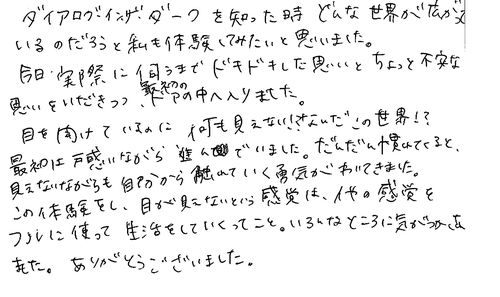 ダイアログインザダークを知った時 どんな世界が広がって
いるのだろうと私も体験してみたいと思いました。
今日実際に伺うまでドキドキした思いとちょっと不安な
思いをいだきつつ、最初のドアの中へ入りました。
目を開けているのに 何も見えない!なんだこの世界!?
最初は戸惑いながら進んでいました。だんだん慣れてくると、
見えないながらも自分から触れていく勇気がわいてきました。
この体験をし、目が見えないという感覚は、他の感覚を
フルに使って生活をしていくってこと。いろんなところに気がつかあ
ました。ありがとうございました。